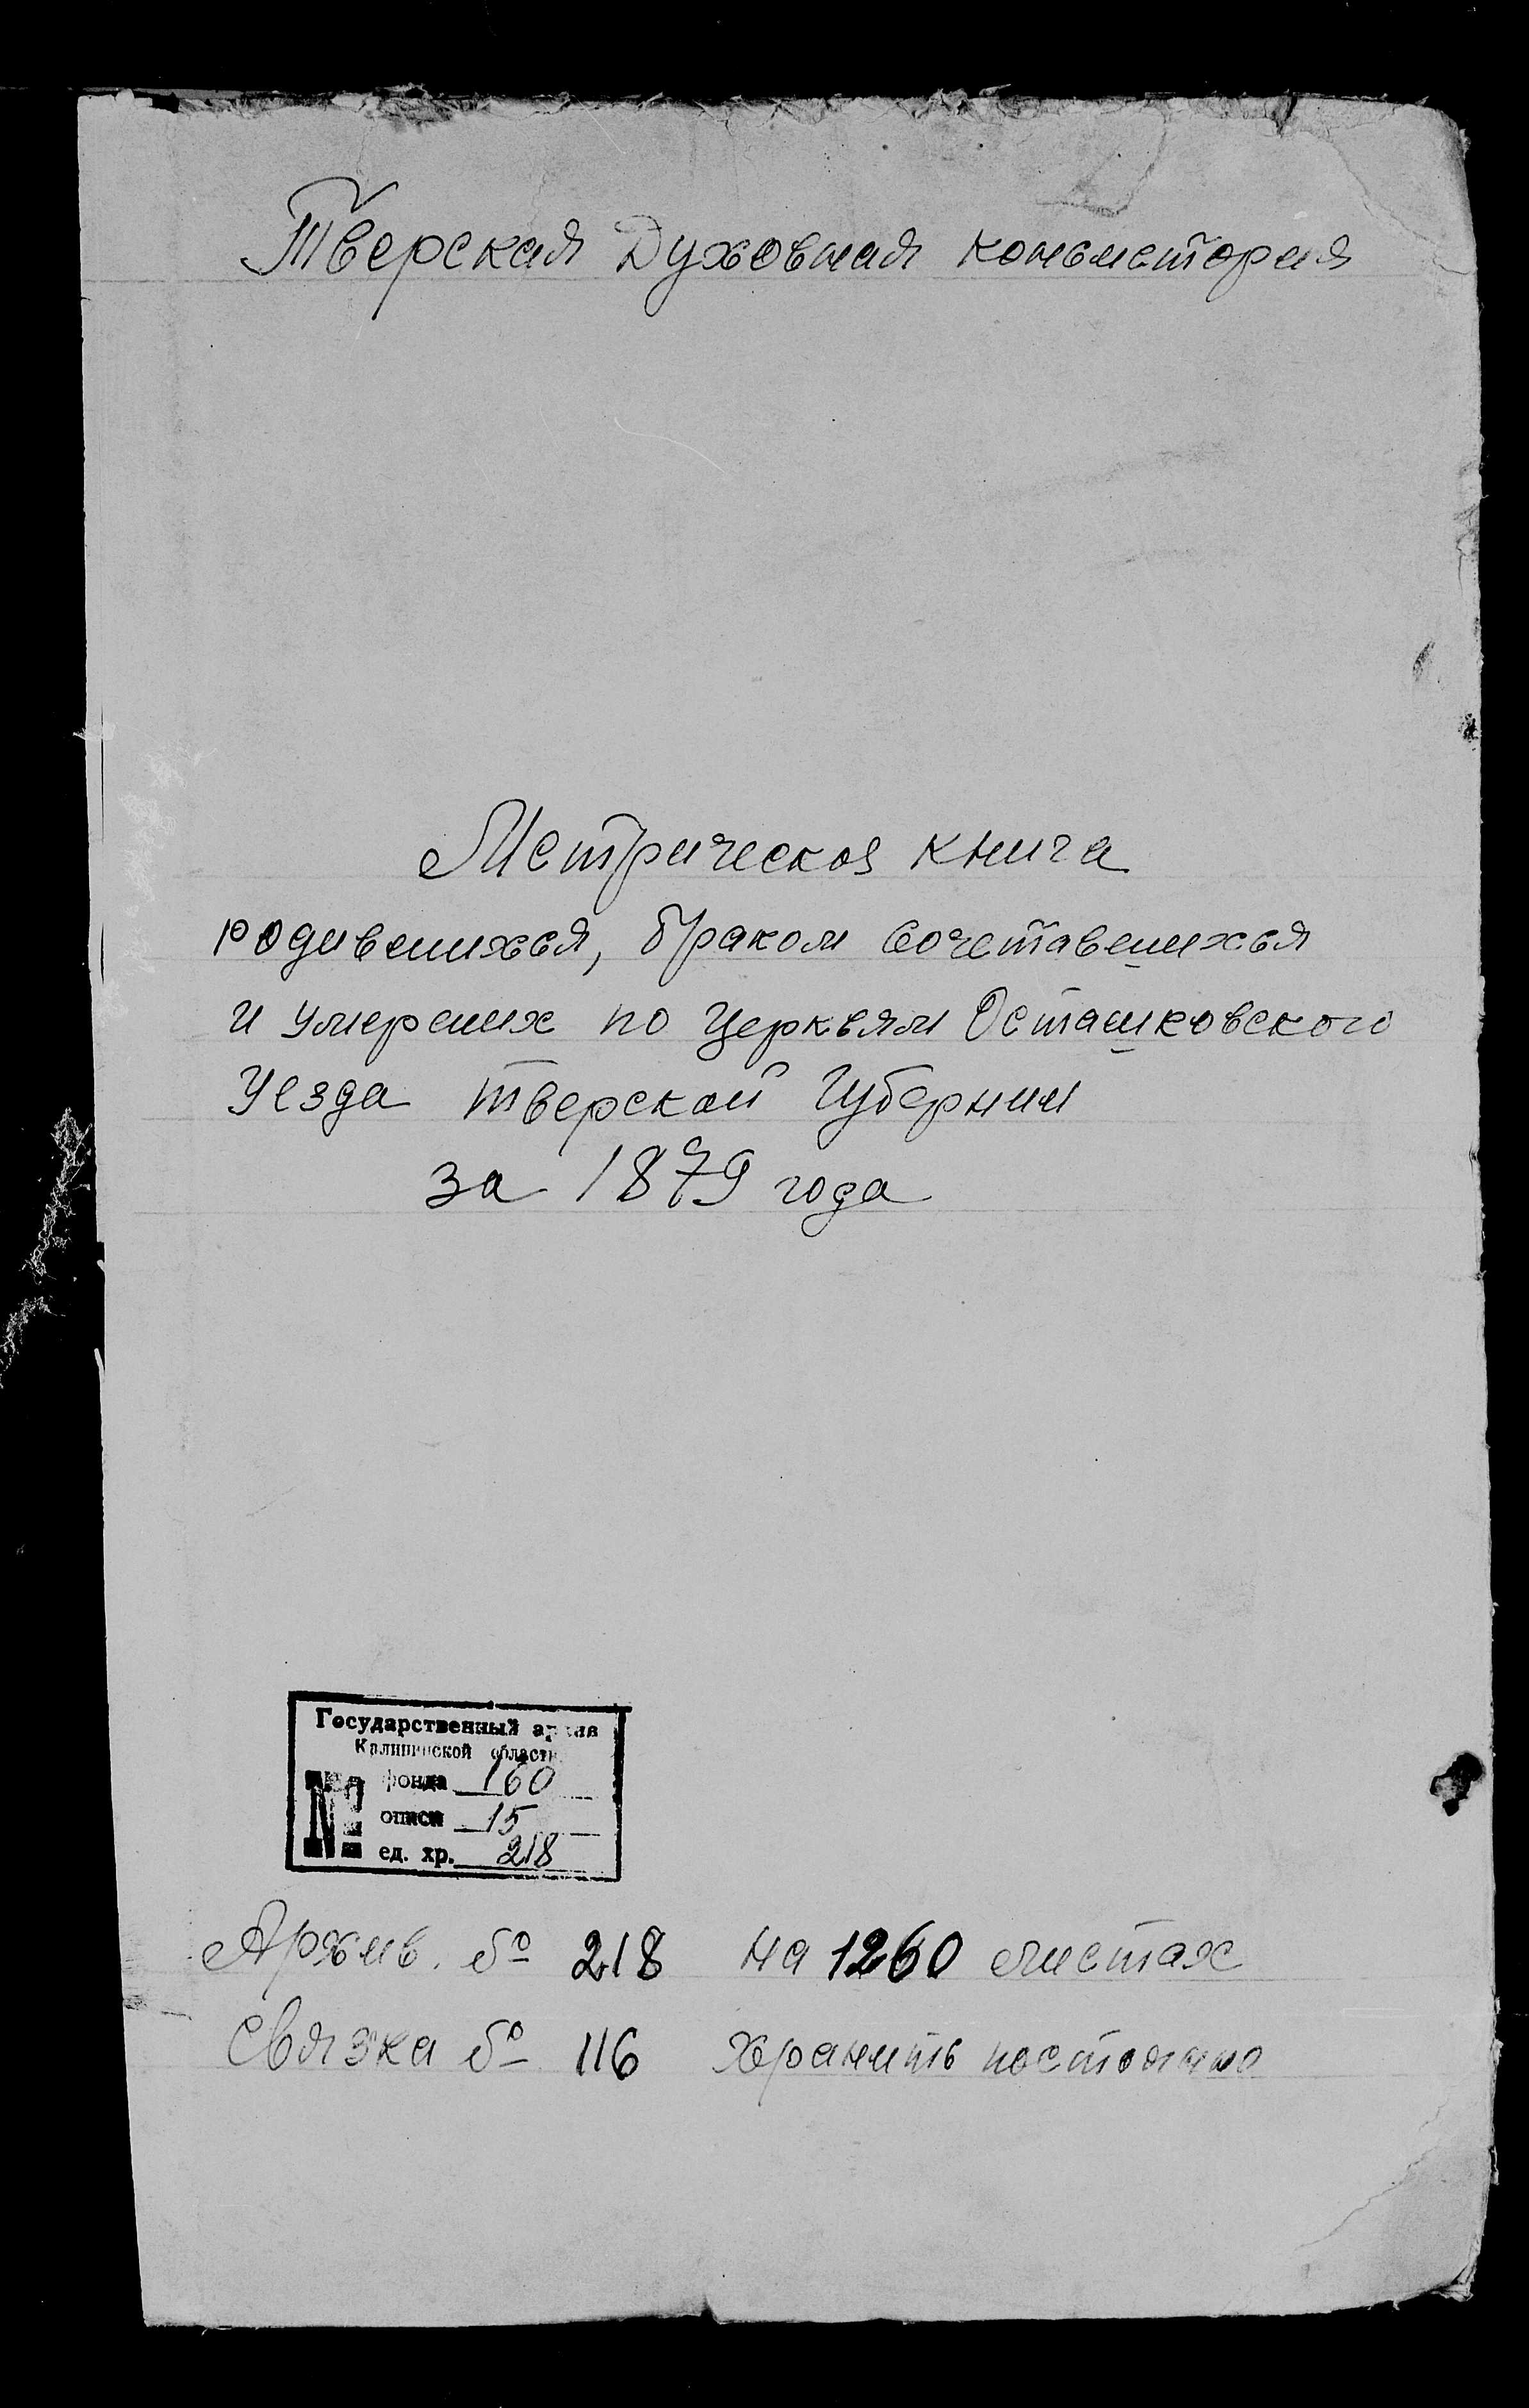 Тверская Духовная консистория
Метрическая книга
родившихся, браком сочетавшихся
и умерших по церквям Осташковского
уезда Тверской Губернии
за 1879 года
Государственный архив
Калининской области
№
фонда 160
описи 15
ед. хр. 218
Архив. № 218 на 1260 листах
Связка № 116 хранить постоянно